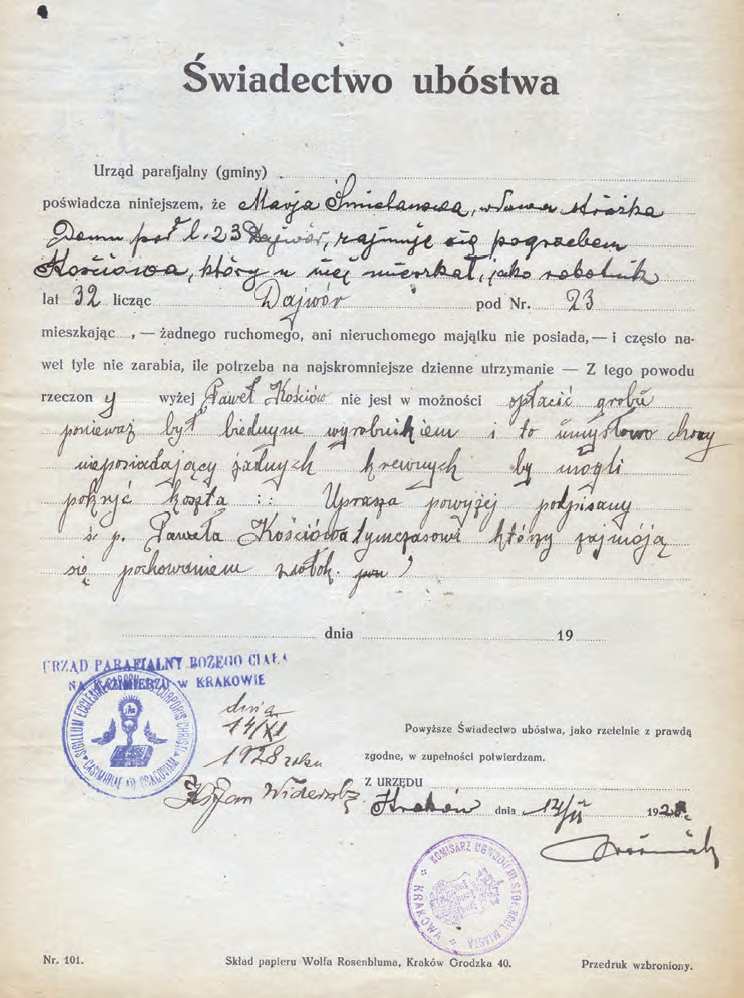 Świadectwo ubóstwa
Urząd parafjalny (gminy)
poświadcza niniejszem, że Marja Śmielanowa, wdowa stróżka
Domu pod l. 23 Dajwór, zajmuje się pogrzebem
Kościowa, który u niej mieszkał, jako robotnik
lat 32 licząc Dajwór pod Nr. 23
mieszkając , — żadnego ruchomego, ani nieruchomego majątku nie posiada, — i często na-
wet tyle nie zarabia, ile potrzeba na najskromniejsze dzienne utrzymanie — Z tego powodu
rzeczon y wyżej Paweł Kościów nie jest w możności opłacić grobu
ponieważ był biednym wyrobnikiem i to umysłowo chory
nieposiadający żadnych krewnych by mogli
pokryć koszta :: Uprasza powyżej podpisany
ś p. Pawela Kościówa tymczasowi którzy zajmóją
się pochowaniem zwłok.
dnia 19
URZĄD PARAFIALNY BOŻEGO CIAŁA
NA KAZIMIERZU W KRAKOWIE
SIGILLUM ECCLESIAE PAROCH. CORPORIS CHRISTI
CASIMIRIAE AD CRACOVIAM
dnia
14/XI
1928 roku
Powyższe Świadectwo ubóstwa, jako rzetelnie z prawdą
zgodne, w zupełności potwierdzam.
Z URZĘDU
Kraków dnia 192
KOMISARZ OBWODU III STOŁ. KRÓL. MIASTA
KRAKOWA
Nr. 101. Skład papieru Wolfa Rosenbluma, Kraków Grodzka 40. Przedruk wzbroniony.